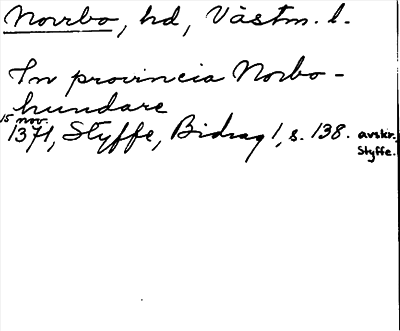 Norrbo, hd, Västm. l.
In provincia Norbo-
hundare
15 nov.
1371, Styffe, Bidrag 1, s. 138. avskr.
Styffe.